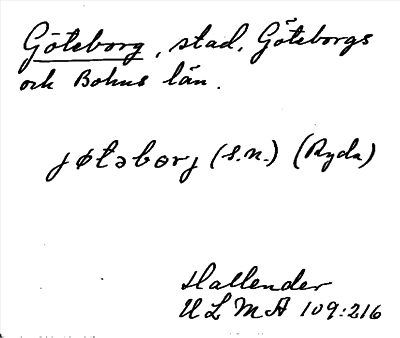 Göteborg, stad, Göteborgs
och Bohus län.
jøtəborj (s.n.) (Ryda)
Hallender
ULMA 109:216